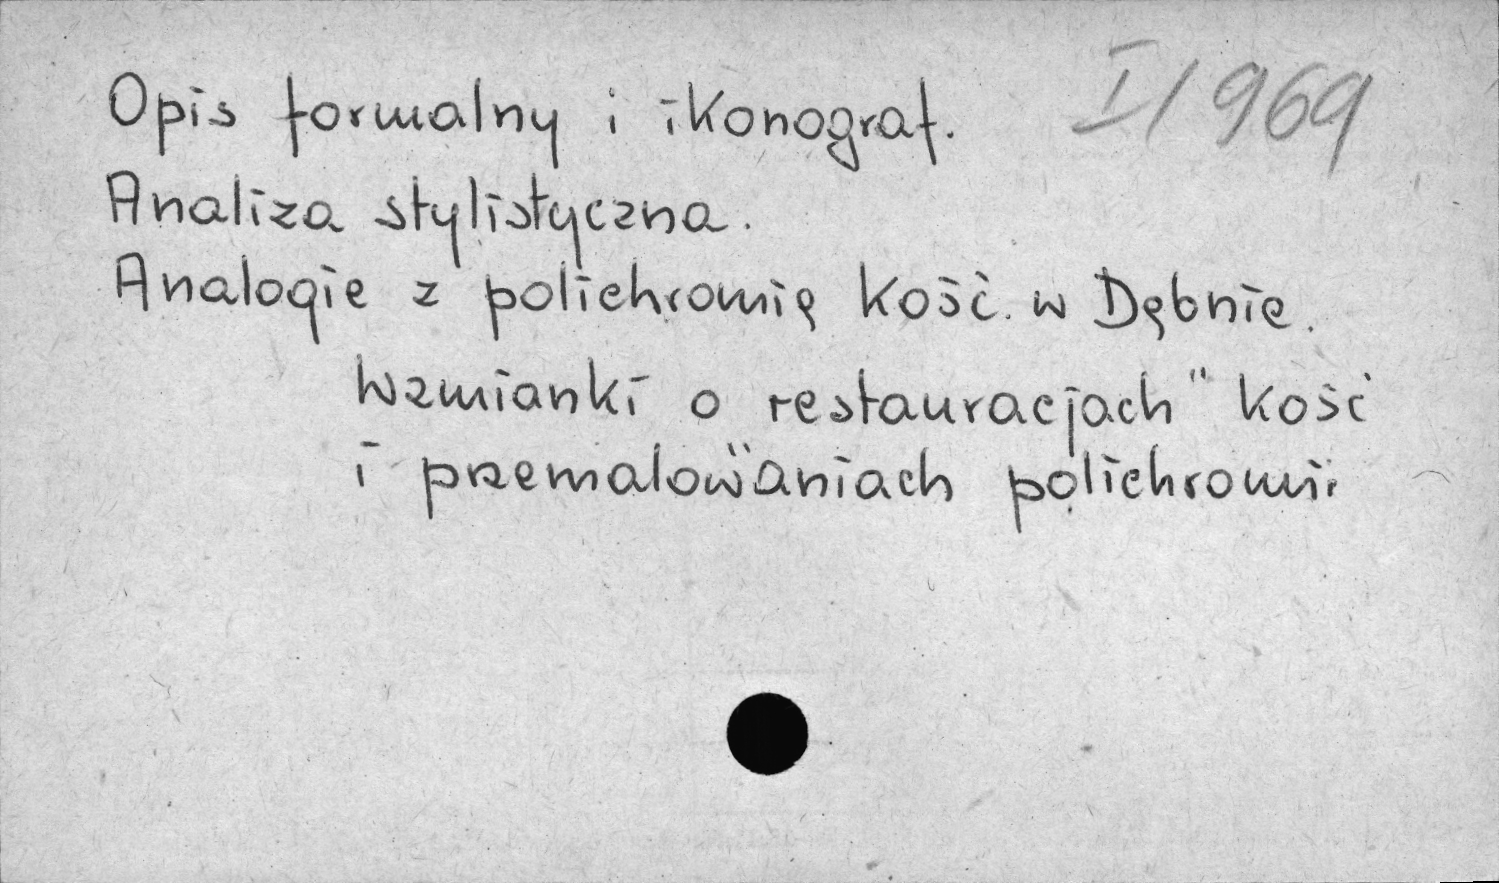 I/969
Opis formalny i ikonograf.
Analiza stylistyczna.
Analogie z polichromię kość. w Dębnie.
Wzmianki o restauracjach" kość
i przemalow"aniach polichromii